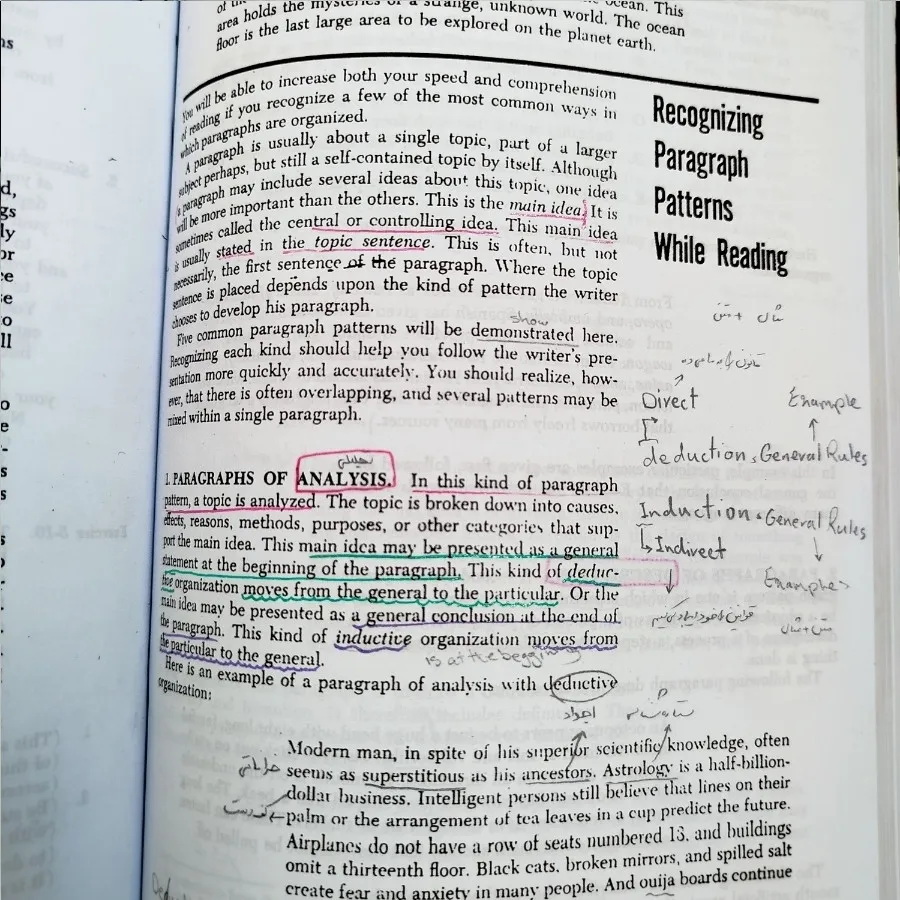 of the
area holds the mysteries of a strange, unknown world. The ocean
floor is the last large area to be explored on the planet earth.
Recognizing
Paragraph
Patterns
While Reading
You will be able to increase both your speed and comprehension
of reading if you recognize a few of the most common ways in
which paragraphs are organized.
A paragraph is usually about a single topic, part of a larger
subject perhaps, but still a self-contained topic by itself. Although
a paragraph may include several ideas about this topic, one idea
will be more important than the others. This is the main idea. It is
sometimes called the central or controlling idea. This main idea
is usually stated in the topic sentence. This is often, but not
necessarily, the first sentence of the paragraph. Where the topic
sentence is placed depends upon the kind of pattern the writer
chooses to develop his paragraph.
show
Five common paragraph patterns will be demonstrated here.
Recognizing each kind should help you follow the writer's pre-
sentation more quickly and accurately. You should realize, how-
ever, that there is often overlapping, and several patterns may be
mixed within a single paragraph.
Direct
Example
deduction General Rules
تحلیلی
1. PARAGRAPHS OF ANALYSIS. In this kind of paragraph
pattern, a topic is analyzed. The topic is broken down into causes,
effects, reasons, methods, purposes, or other categories that sup-
port the main idea. This main idea may be presented as a general
statement at the beginning of the paragraph. This kind of deduc-
tive organization moves from the general to the particular. Or the
main idea may be presented as a general conclusion at the end of
the paragraph. This kind of inductive organization moves from
the particular to the general.
Induction General Rules
Indirect
Examples
is at the beggining
Here is an example of a paragraph of analysis with deductive
organization:
اجداد
Modern man, in spite of his superior scientific knowledge, often
seems as superstitious as his ancestors. Astrology is a half-billion-
dollar business. Intelligent persons still believe that lines on their
palm or the arrangement of tea leaves in a cup predict the future.
Airplanes do not have a row of seats numbered 13, and buildings
omit a thirteenth floor. Black cats, broken mirrors, and spilled salt
create fear and anxiety in many people. And ouija boards continue
خرافاتی
کف دست